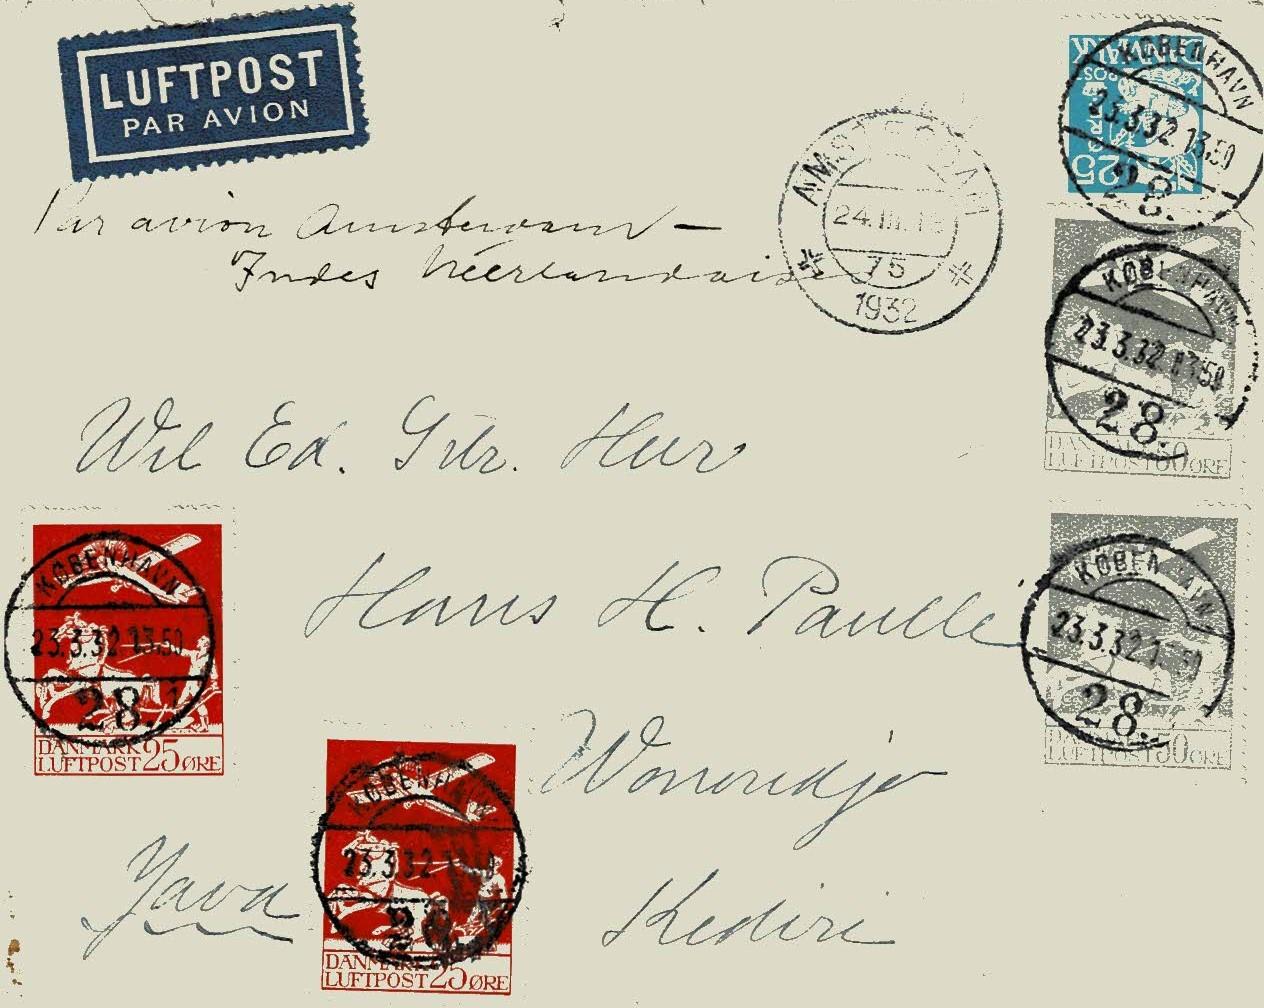 LUFTPOST
PAR AVION
Par avion Amsterdam —
Indes Néerlandaises
AMSTERDAM
24.III.
75
1932
DANMARK
25
KØBENHAVN
23.3.32 13.50
28.
DANMARK
LUFTPOST 50 ØRE
KØBENHAVN
23.3.32 13.50
28.
DANMARK
LUFTPOST 50 ØRE
KØBENHAVN
23.3.32
28.
Wel Ed. Herr
Hans H. Paulli
KØBENHAVN
23.3.32 13.50
28.
DANMARK
LUFTPOST 25 ØRE
KØBENHAVN
23.3.32
28.
DANMARK
LUFTPOST 25 ØRE
Java
Kediri